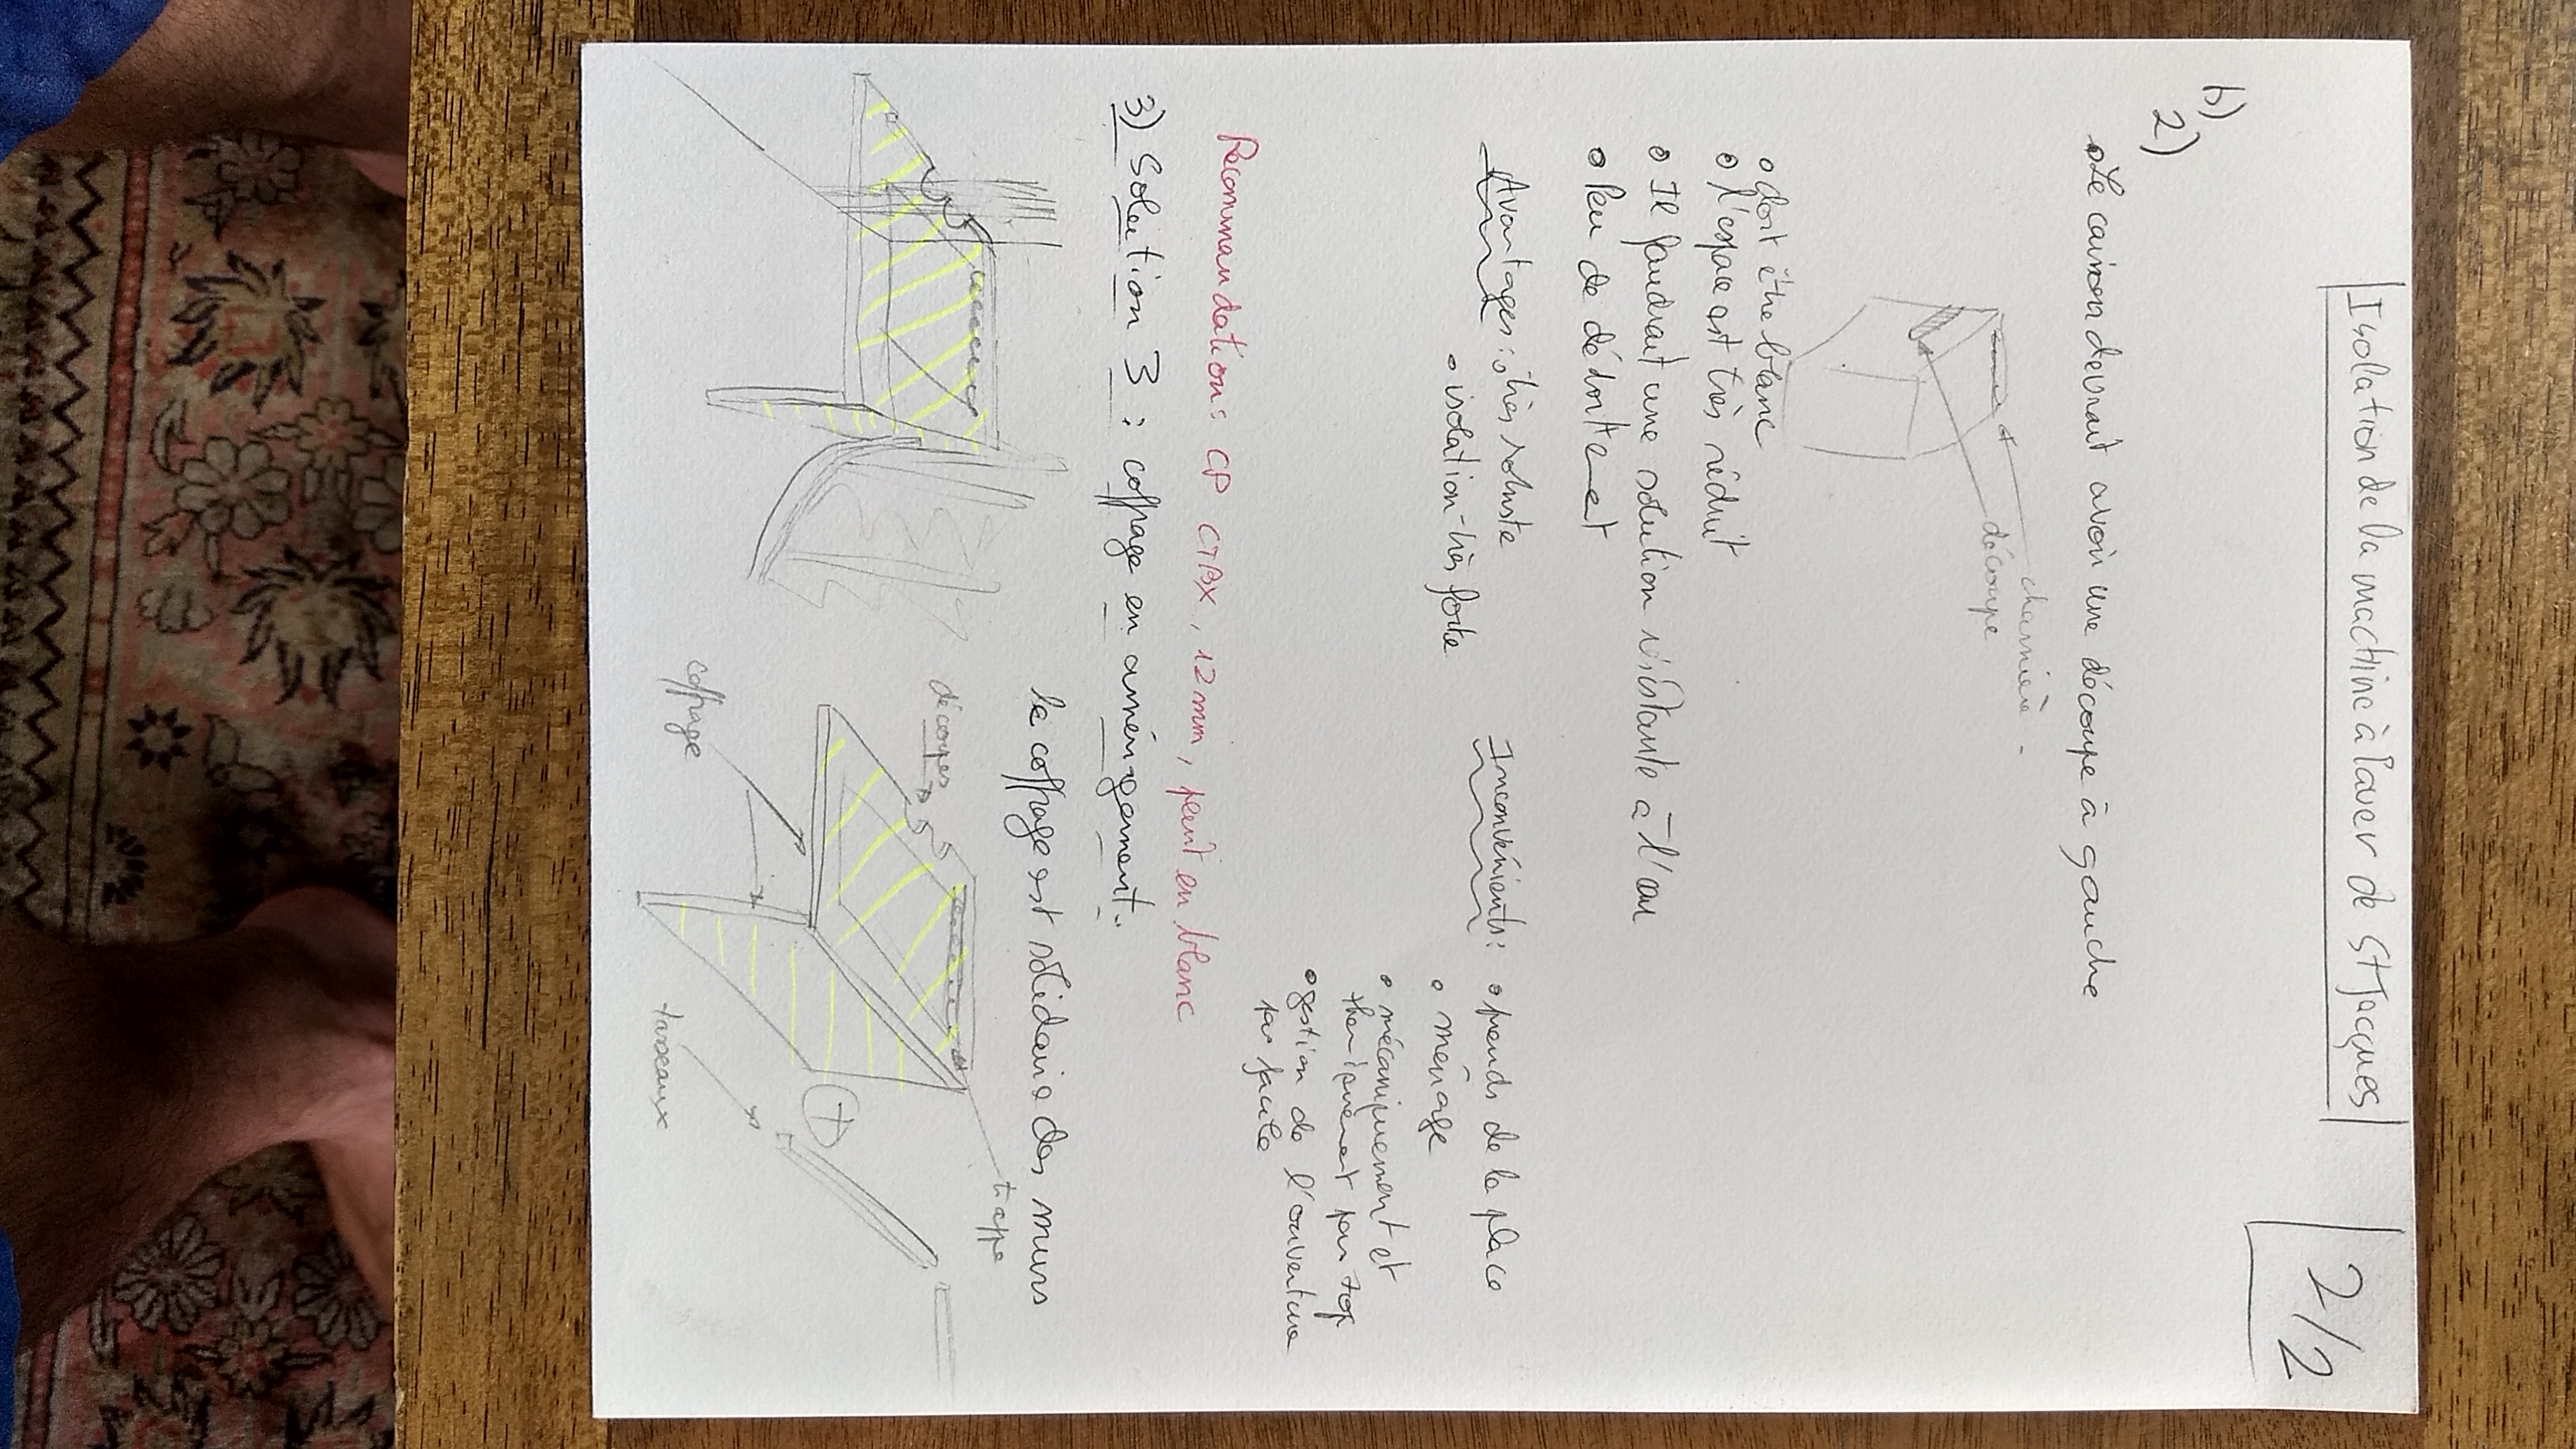 Isolation de la machine à laver de St Jacques
2/2
b)
2)
• Le caisson devrait avoir une découpe à gauche
charnière
découpe
• doit être blanc
• l'espace est très réduit
• Il faudrait une solution résistante à l'eau
• Peu de dédorte
Avantages : • très robuste
• isolation très forte
Inconvénients : • prends de la place
• ménage
• mécaniquement et
thermiquement pas top
• gestion de l'ouverture
pas facile
Recommandation : CP CTBX, 12 mm, peint en blanc
3) Solution 3 : coffrage en aménagement :
le coffrage est solidaire des murs
découpes
trappe
coffrage
+
tasseaux